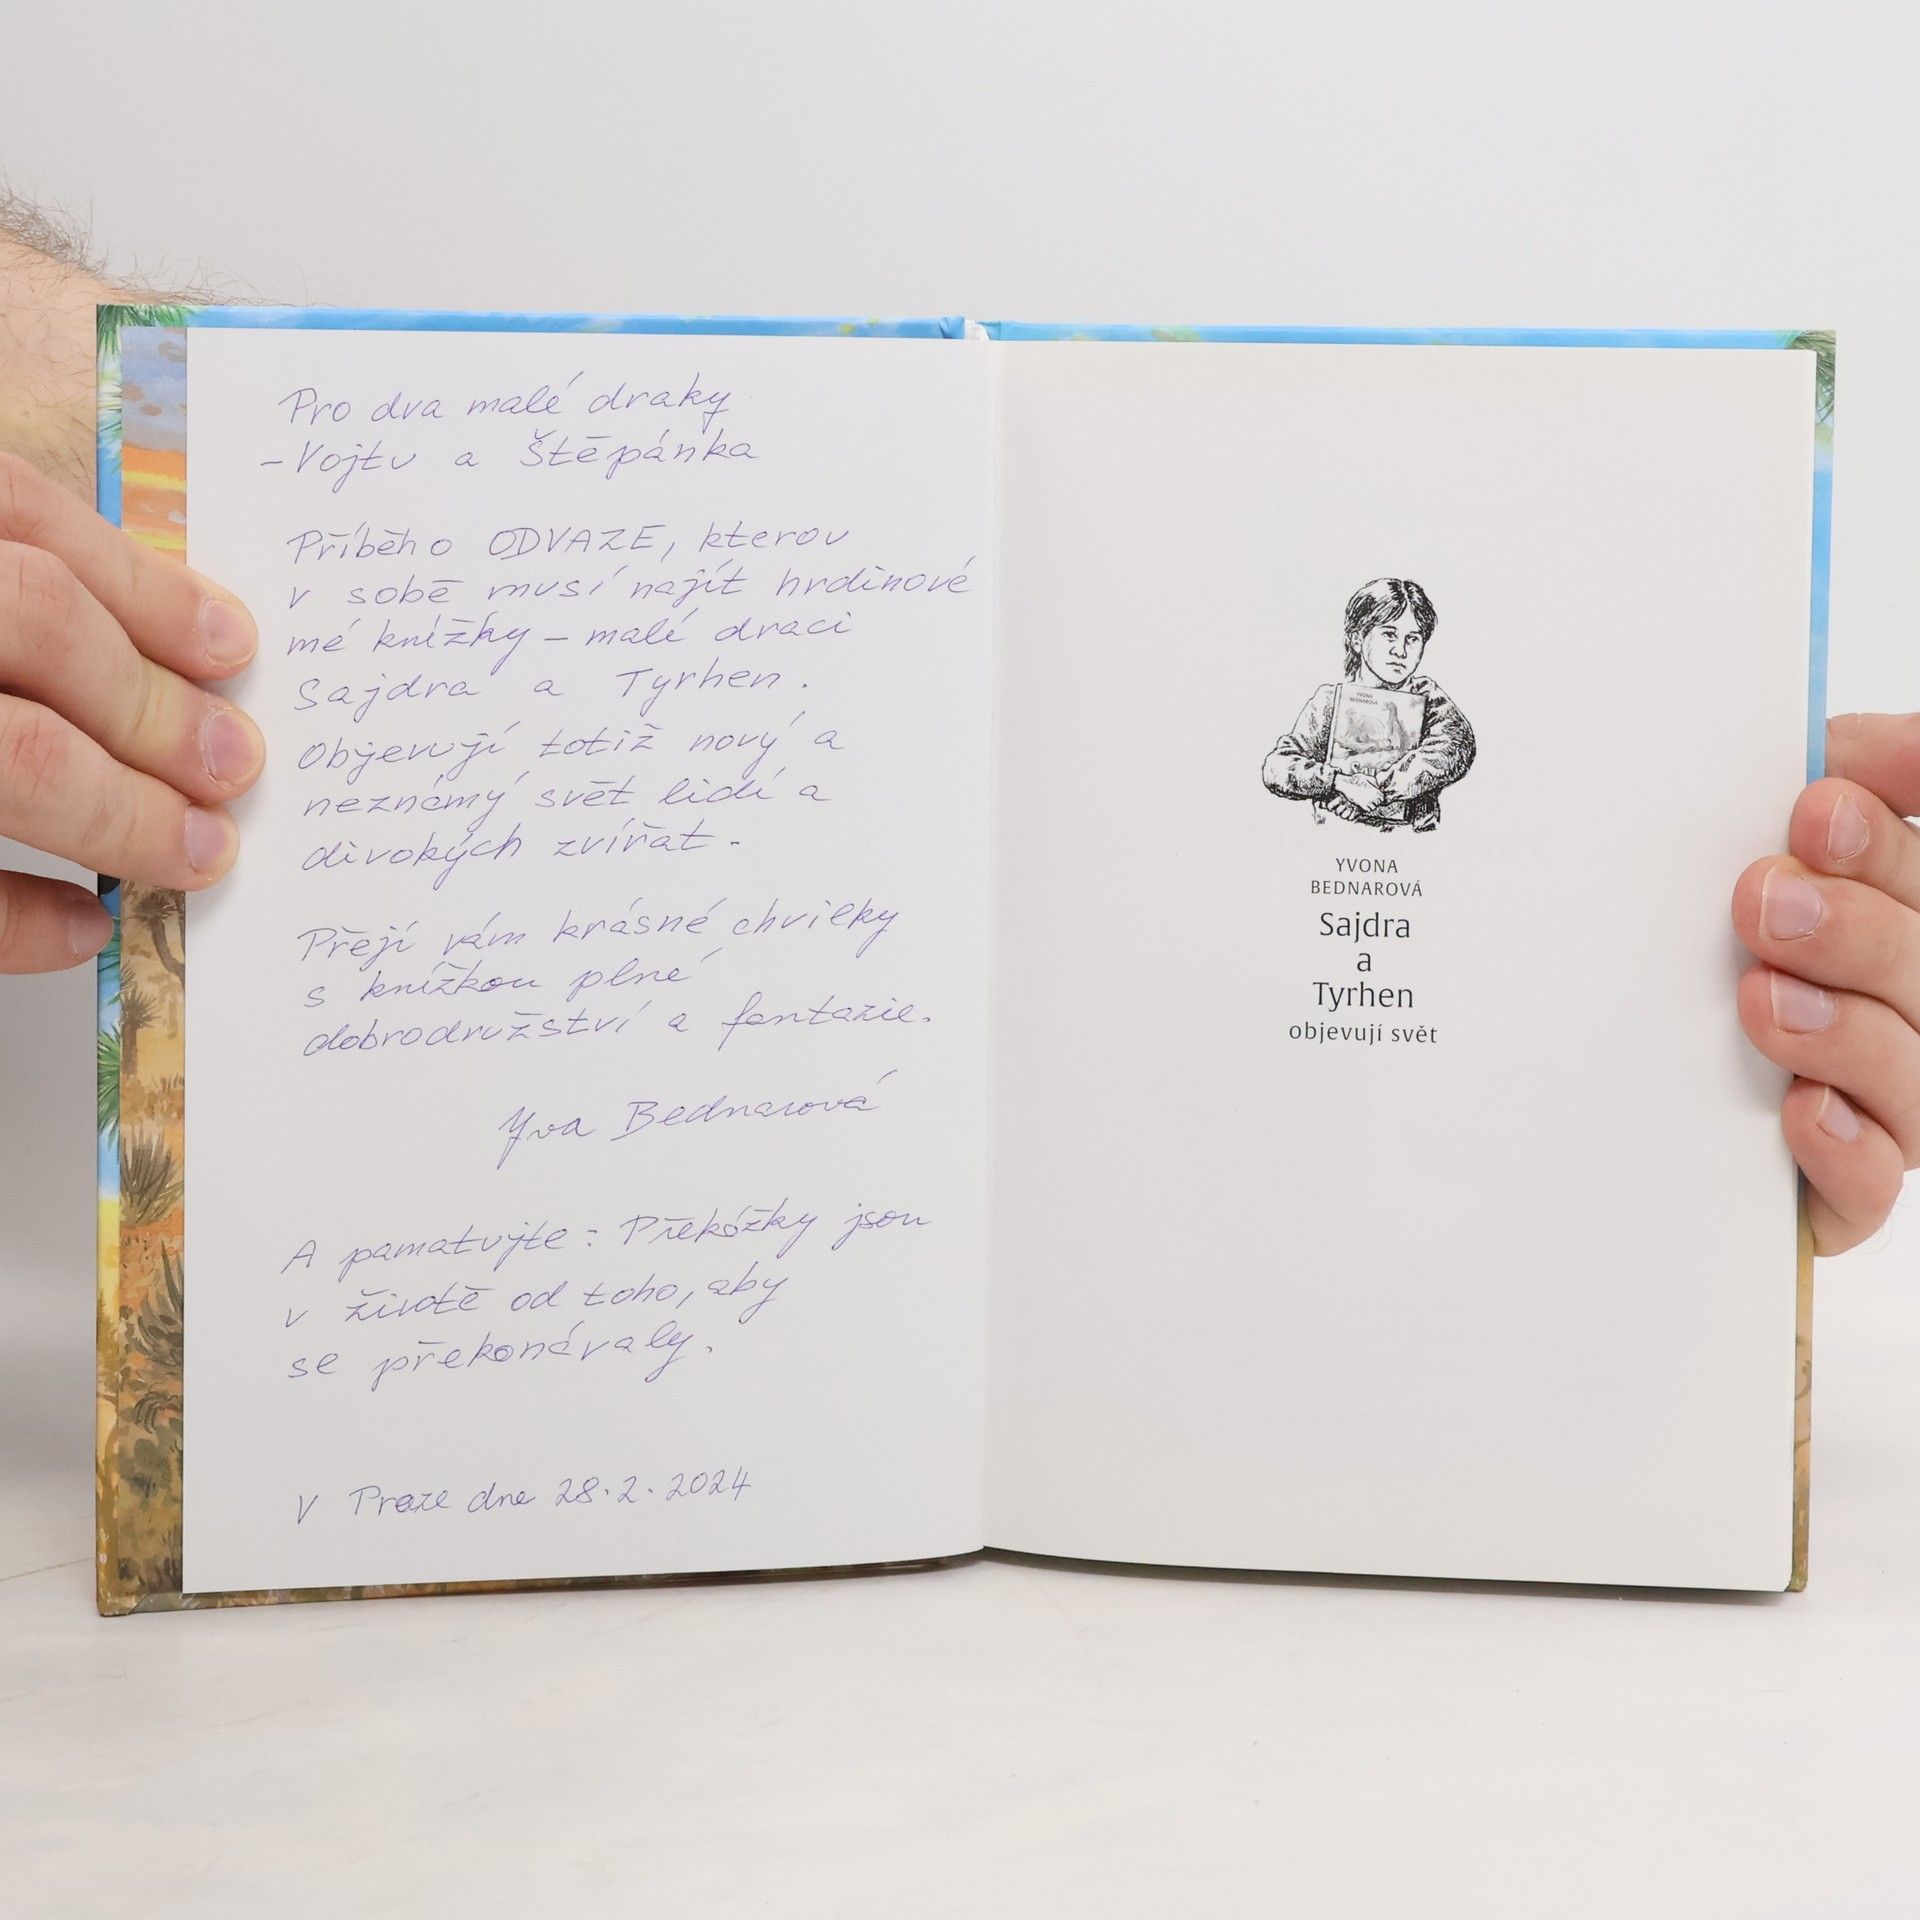 Pro dva malé draky
– Vojtu a Štěpánka
Příběh o ODVAZE, kterou
v sobě musí najít hrdinové
mé knížky – malí draci
Sajdra a Tyrhen.
Objevují totiž nový a
neznámý svět lidí a
divokých zvířat.
Přeji vám krásné chvilky
s knížkou plné
dobrodružství a fantazie.
Yva Bednarová
A pamatujte: Překážky jsou
v životě od toho, aby
se překonávaly.
V Praze dne 28.2.2024
YVONA
BEDNAROVÁ
YVONA
BEDNAROVÁ
Sajdra
a
Tyrhen
objevují svět